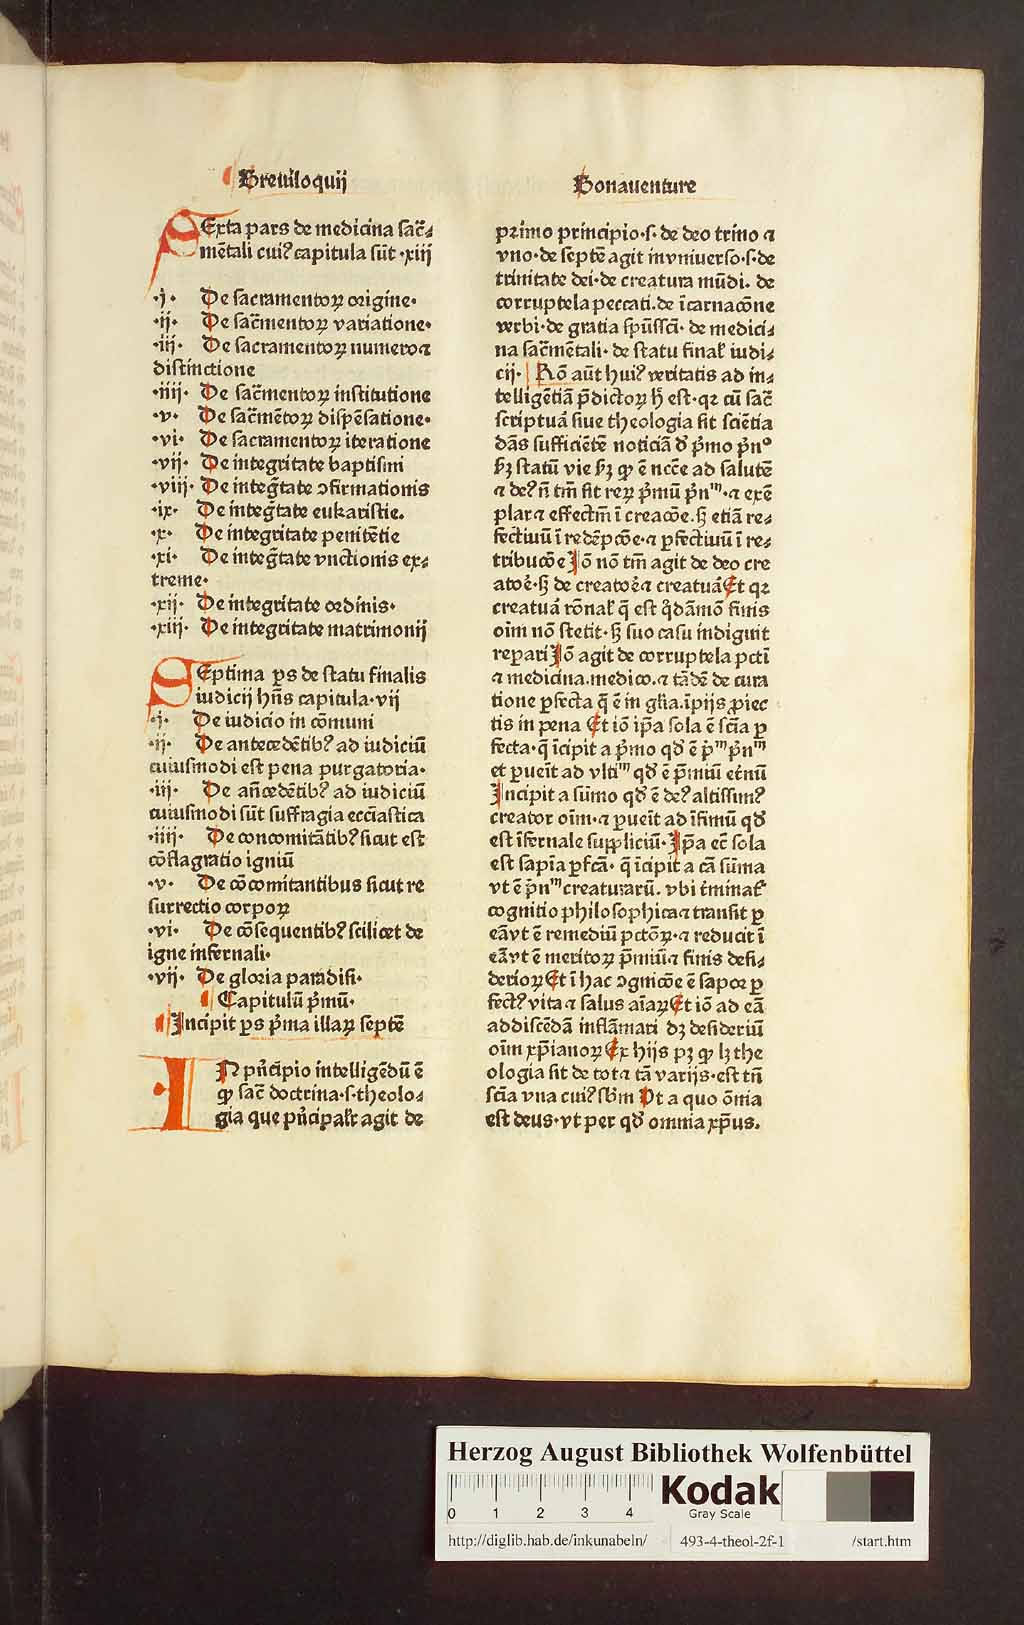 Breuiloquij
Bonauenture
SExta pars de medicina sac̃⸗
mẽtali cuiꝰ capitula sũt ·xiij
·i· De sacramentoꝝ origine·
·ij· De sac̃mentoꝝ variatione·
·iij· De sacramentoꝝ numero ⁊
distinctione
·iiij· De sac̃mentoꝝ institutione
·v· De sac̃mẽtoꝝ dispẽsatione·
·vi· De sacramentoꝝ iteratione
·vij· De integritate baptismi
·viij· De integ̃tate ɔfirmationis
·ix· De integ̃tate eukaristie.
·x· De integritate penitẽtie
·xi· De integ̃tate vnctionis ex⸗
treme·
·xij· De integritate ordinis·
·xiij· De integritate matrimonij
SEptima ꝑs de statu finalis
iudicij hñs capitula·vij
·i· De iudicio in cõmuni
·ij· De antecedẽtibꝰ ad iudiciũ
cuiusmodi est pena purgatoria·
·iij· De añcedẽtibꝰ ad iudiciũ
cuiusmodi sũt suffragia ecc̃iastica
·iiij· De concomitãtibꝰ sicut est
cõflagratio igniũ
·v· De cõcomitantibus sicut re
surrectio corpoꝝ
·vi· De cõsequentibꝰ scilicet de
igne infernali·
·vij· De gloria paradisi·
Capitulũ p̃mũ·
Incipit ꝑs p̃ma illaꝝ septẽ
IN pñcipio intelligẽdũ ẽ
ꝙ sac̃ doctrina·s·theolo⸗
gia que pñcipalr̃ agit de
primo principio·s·de deo trino ⁊
vno·de septẽ agit in vniuerso·s·de
trinitate dei·de creatura mũdi· de
corruptela peccati.de ĩcarnacõne
verbi·de gratia sp̃ussc̃i· de medici⸗
na sac̃mẽtali· de statu final̃ iudi⸗
cij· Rõ aũt huiꝰ veritatis ad in⸗
telligẽtiã p̃dictoꝝ h̃ est·qꝛ cũ sac̃
scriptuã siue theologia sit sciẽtia
dãs sufficiẽtẽ noticiã đ p̃mo p̃nᵒ
ẜꝫ statũ vie ẜꝫ ꝙ ẽ ncc̃e ad salutẽ
⁊ deꝰ ñ tm̃ sit reꝝ p̃mũ p̃nᵐ·⁊ exẽ
plar ⁊ effectm̃ ĩ creacõe·ẜꝫ etiã re⸗
fectiuũ ĩ redẽpcõe·⁊ ꝑfectiuũ ĩ re⸗
tribucõe Iõ nõ tm̃ agit de deo cre
atoẽ·ẜꝫ de creatoẽ ⁊ creatuã Et qꝛ
creatuã rõnal̃ q̃ est q̃dãmõ finis
oĩm nõ stetit·ẜꝫ suo casu indiguit
repari Iõ agit de corruptela pcti̇̃
⁊ medicina.medico.⁊ tãdẽ de cura
tione ꝑfecta q̃ ẽ in gl̃ia.ĩpijs ꝓiec
tis in pena Et iõ ip̃a sola ẽ sc̃ia ꝑ
fecta·q̃ ĩcipit a p̃mo qđ ẽ p̃ᵐ p̃nᵐ
et ꝑueĩt ad vltiᵐ qđ ẽ p̃miũ et̃nũ
Incipit a sũmo qđ ẽ deꝰ altissimꝰ
creator oĩm·⁊ ꝑueĩt ad ĩfimũ qđ
est ĩfernale suppliciũ· Ip̃a ec̃ sola
est sapĩa ꝑfc̃ã· q̃ ĩcipit a cã sũma
vt ẽ p̃nᵐ creaturarũ. vbi t̃minat̃
cognitio philosophica ⁊ transit ꝑ
eã vt ẽ remediũ pctõꝝ·⁊ reducit ĩ
eã vt ẽ meritoꝝ p̃miũ ⁊ finis desi⸗
derioꝝ Et ĩ hac ɔgnicõe ẽ sapor ꝑ
fectꝰ vita ⁊ salus aĩaꝝ Et iõ ad eã
addiscẽdã inflãmari dꝫ desideriũ
oĩm xp̃ianoꝝ Ex hijs pꝫ ꝙ lꝫ the
ologia sit de tot ⁊ tã varijs·est tñ
sc̃ia vna cuiꝰ sb̃m Vt a quo õmia
est deus·vt per qđ omnia xp̃us.
Herzog August Bibliothek Wolfenbüttel
0 1 2 3 4
Kodak
Gray Scale
http://diglib.hab.de/inkunabeln/ 493-4-theol-2f-1 /start.htm